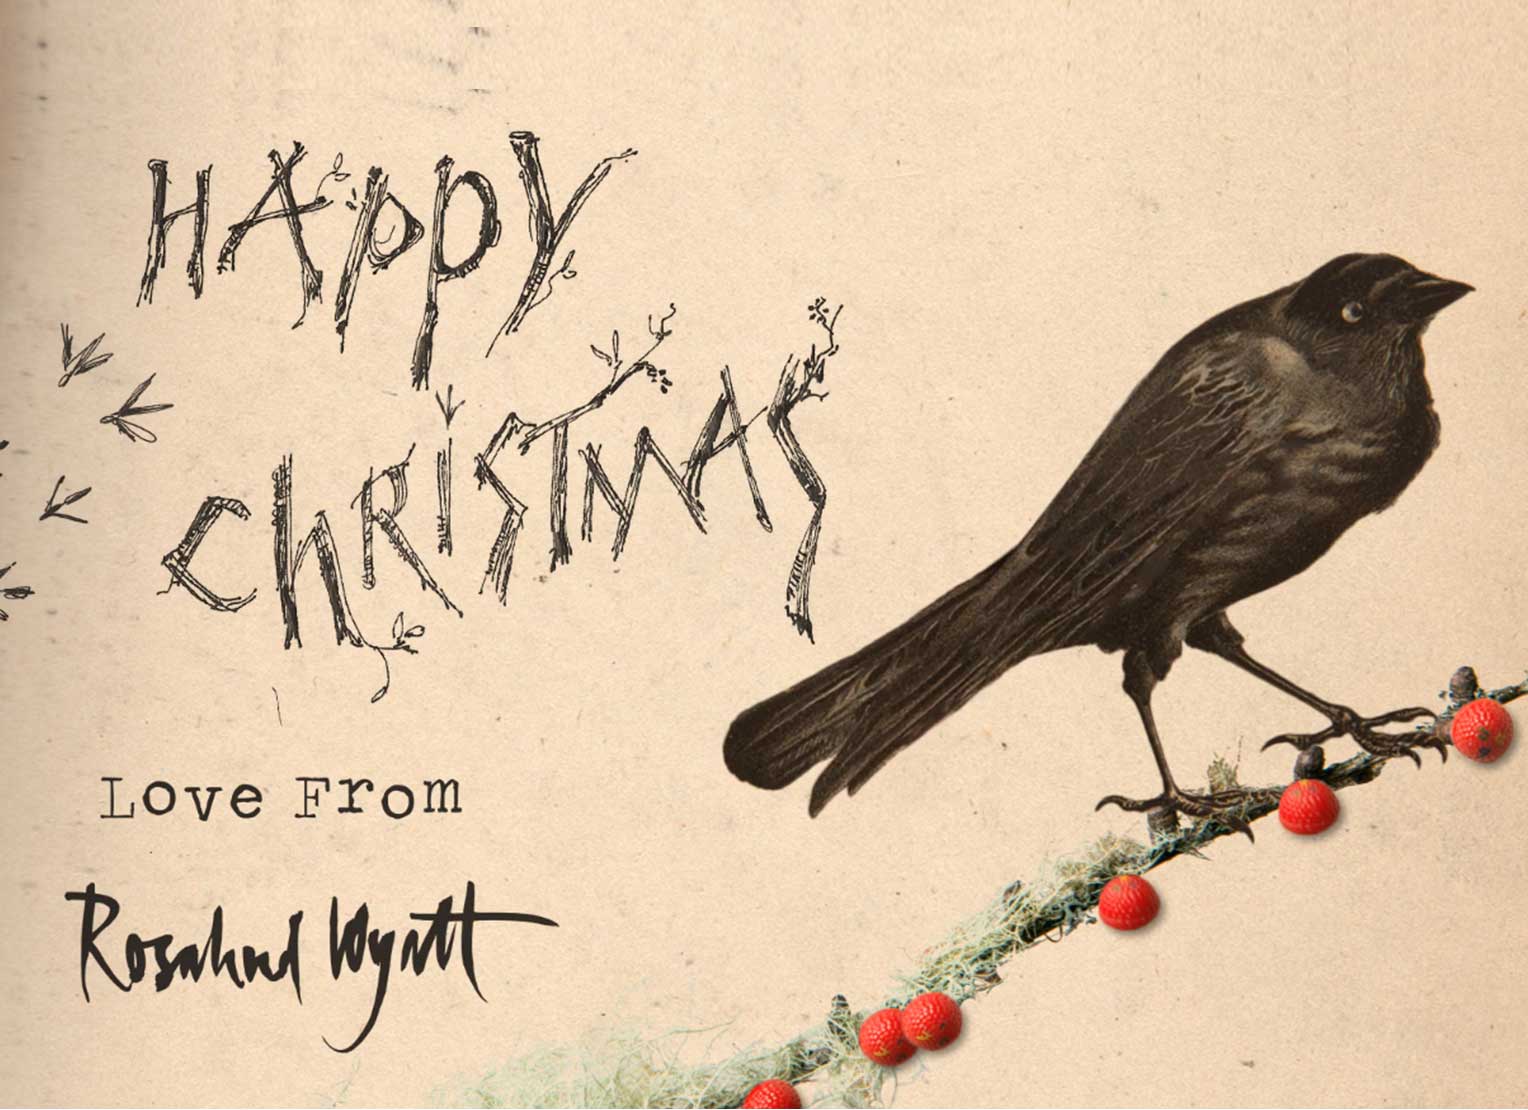 HAppy
ChRiSTMAS
Love From
Rosalind Wyatt